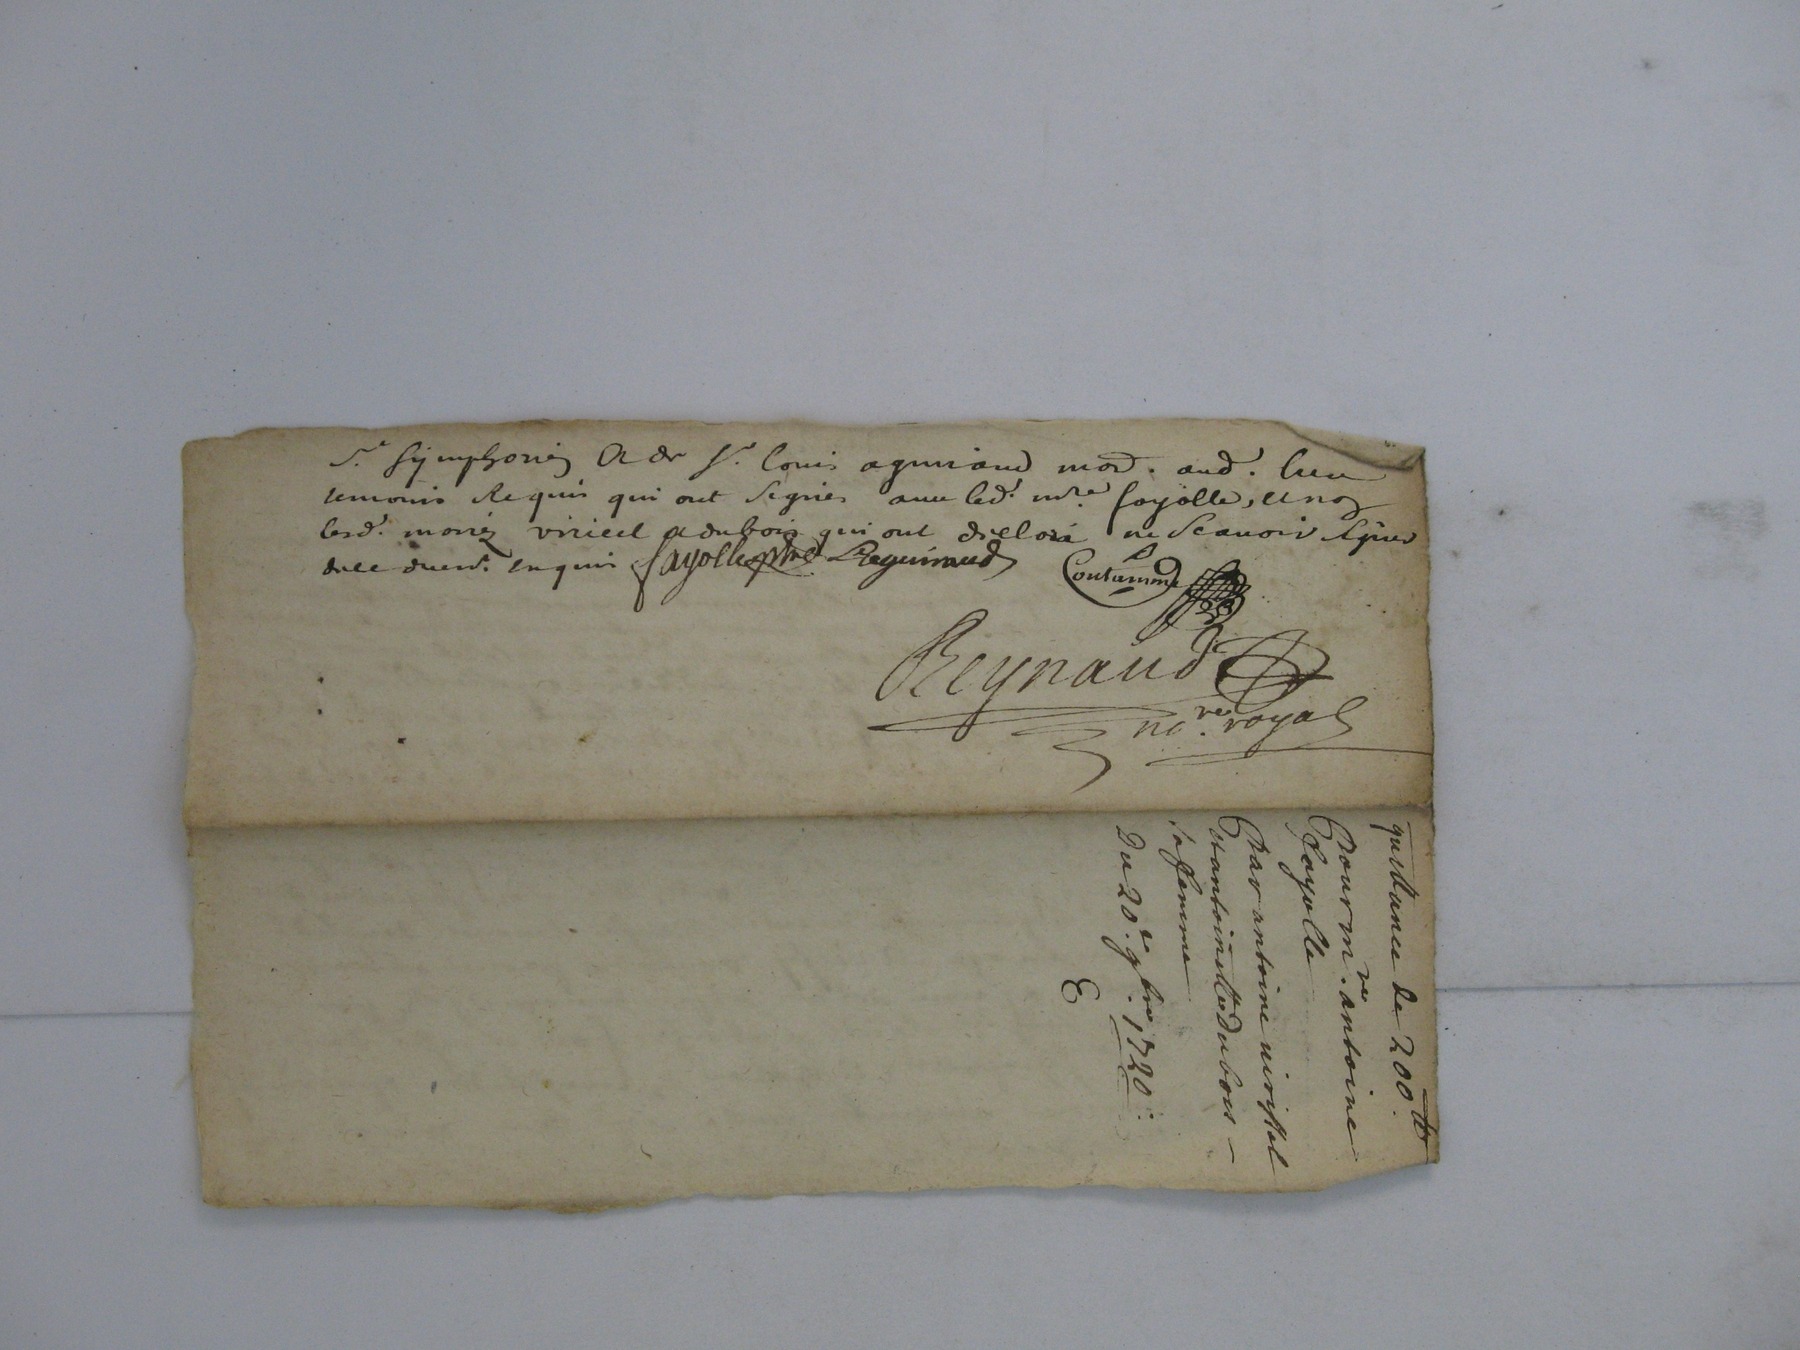 St. Symphorien Et de Sr. Louis aguiraud mord. aud. lieu
temoins Requis qui ont Signés avec led. mre. fayolle, et non
lesd. mariés viricel et dubois qui ont declaré ne Scavoir Signer
de ce duem. enquis fayolle ptre Leguiraud Contamine
Reynaud
nore. royal
quittance de 200 ₶.
Pour mre. antoine
fayolle
Par antoine virissel
Et antoinette Dubois -
sa femme
Du 20e. 9bre. 1720 :